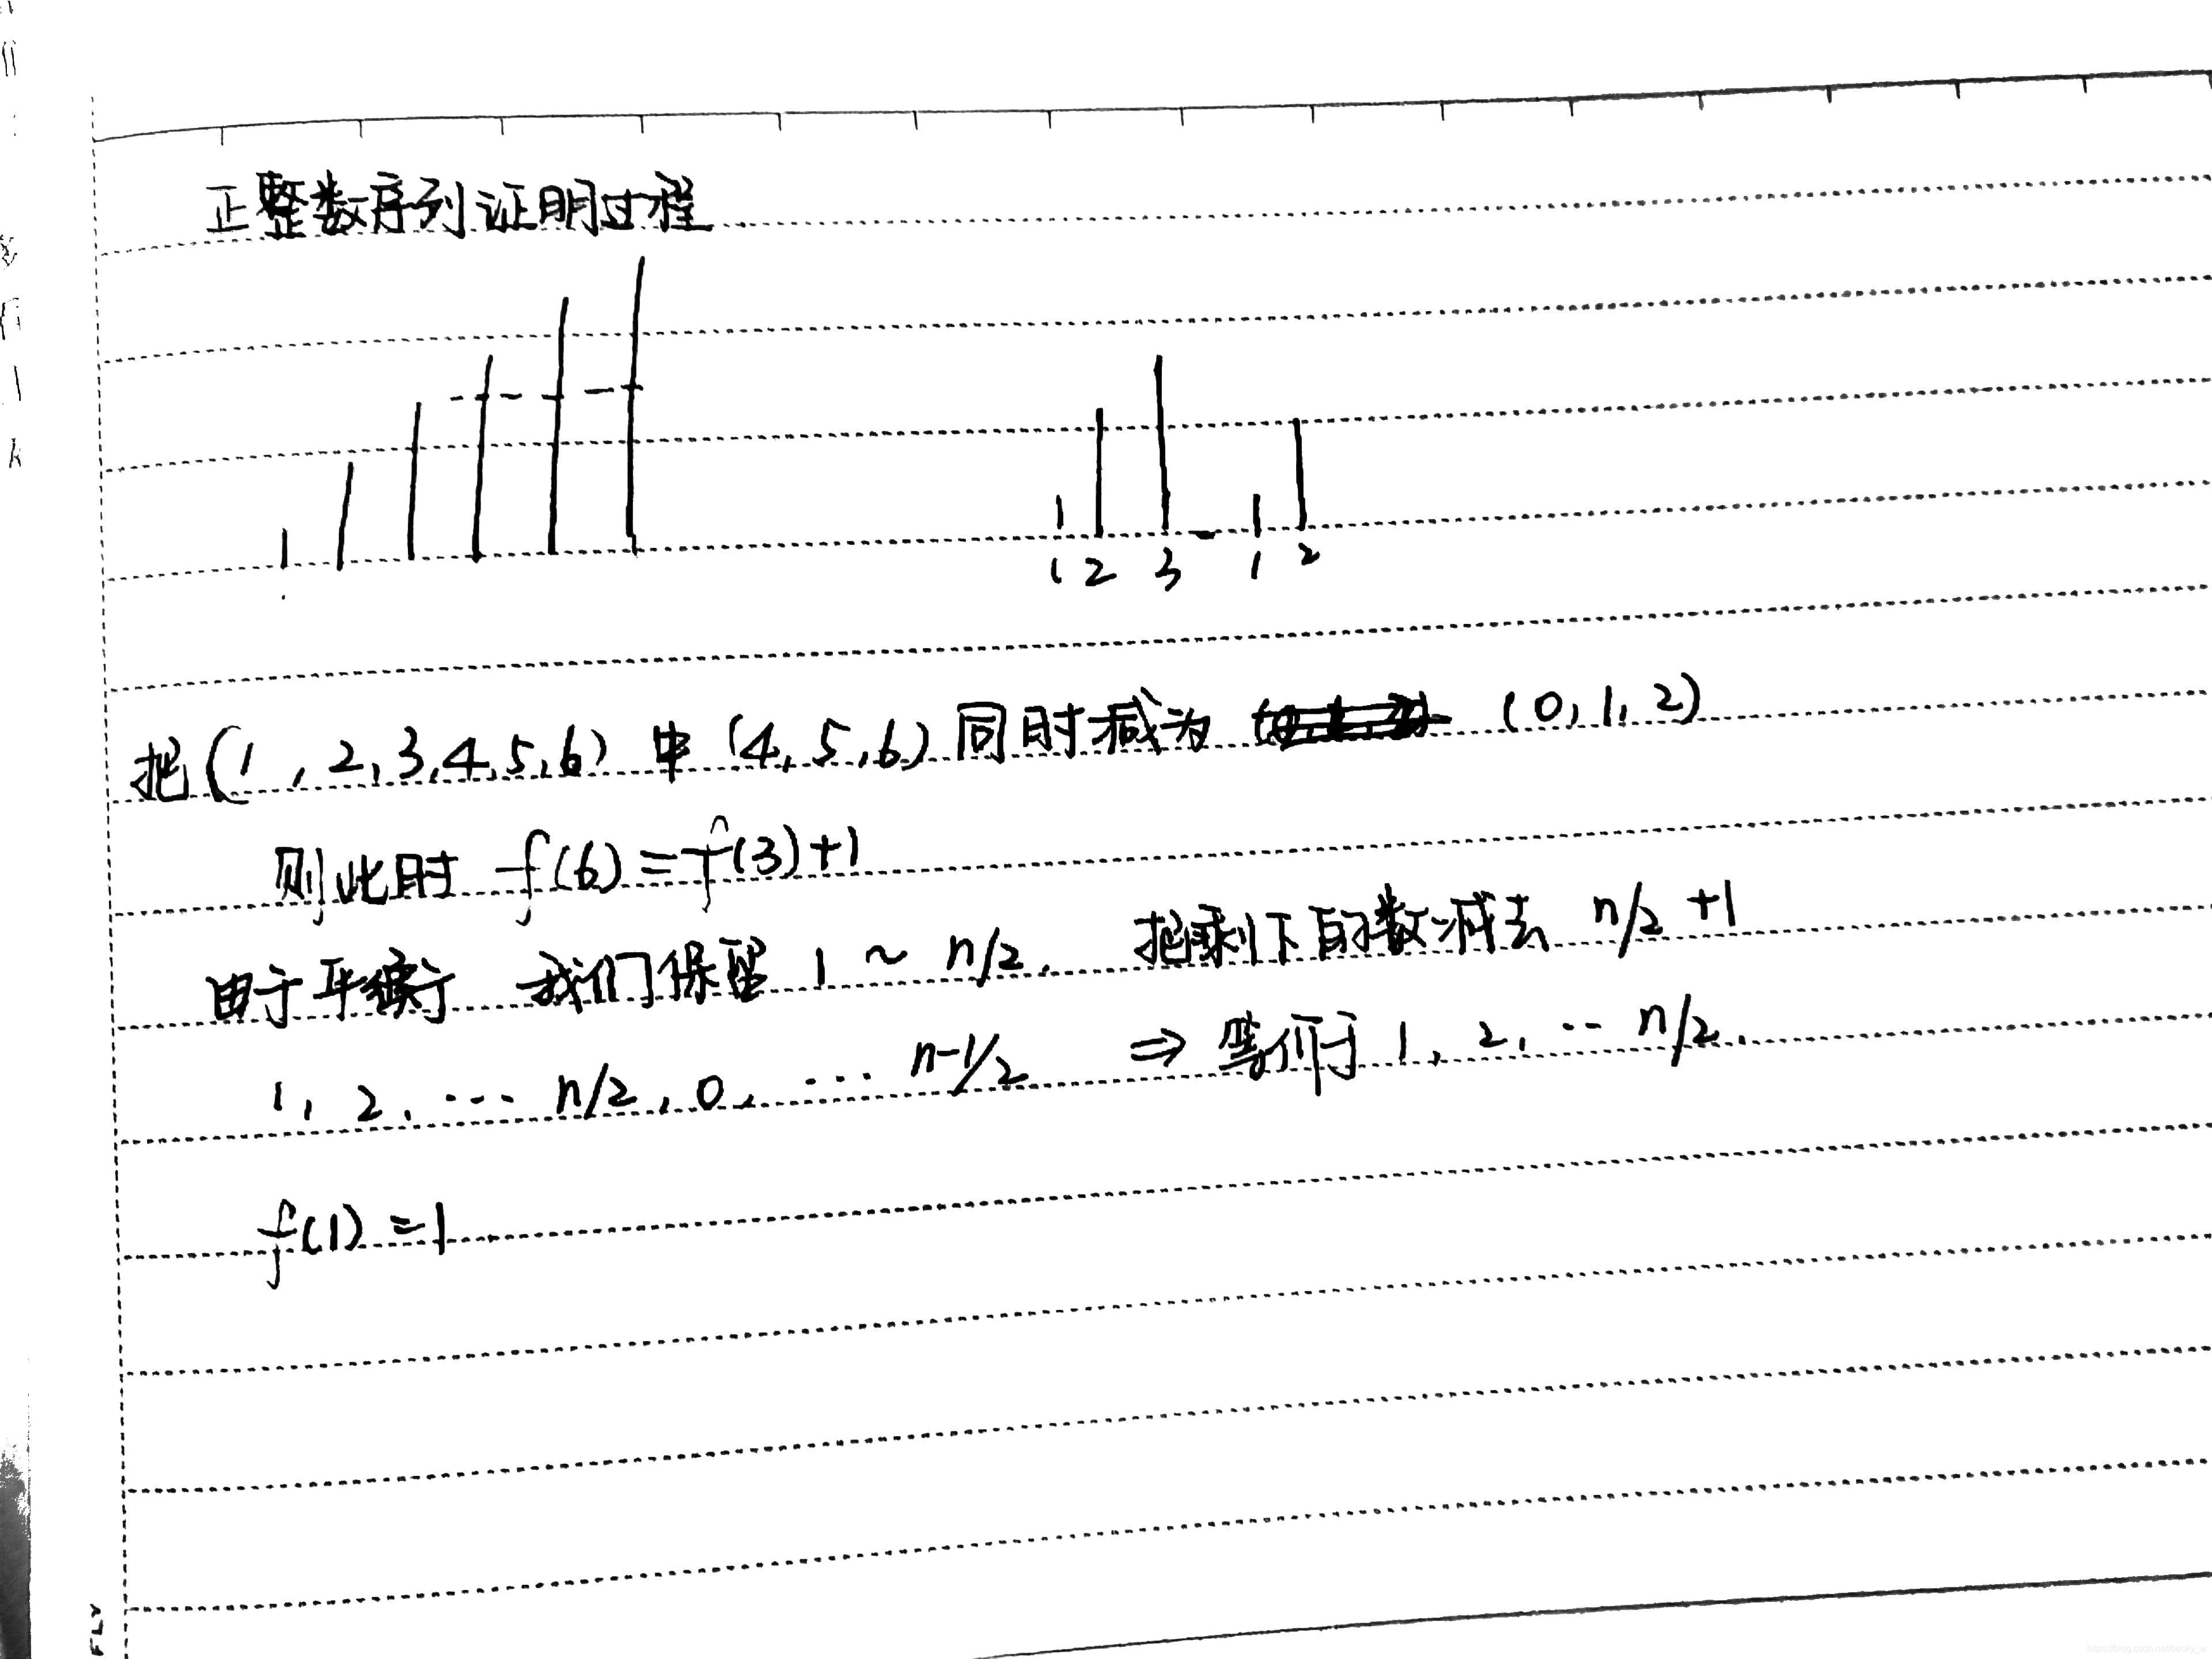 正整数序列证明过程
1 2 3 1 2
把(1,2,3,4,5,6)中(4,5,6)同时减为 (0,1,2)
则此时 f(6)=f(3)+1
由于平衡 我们保留 1~n/2, 把剩下的数减去 n/2+1
1, 2, … n/2, 0, … n-1/2 ⇒ 等价于 1, 2, … n/2.
f(1)=1
FLY